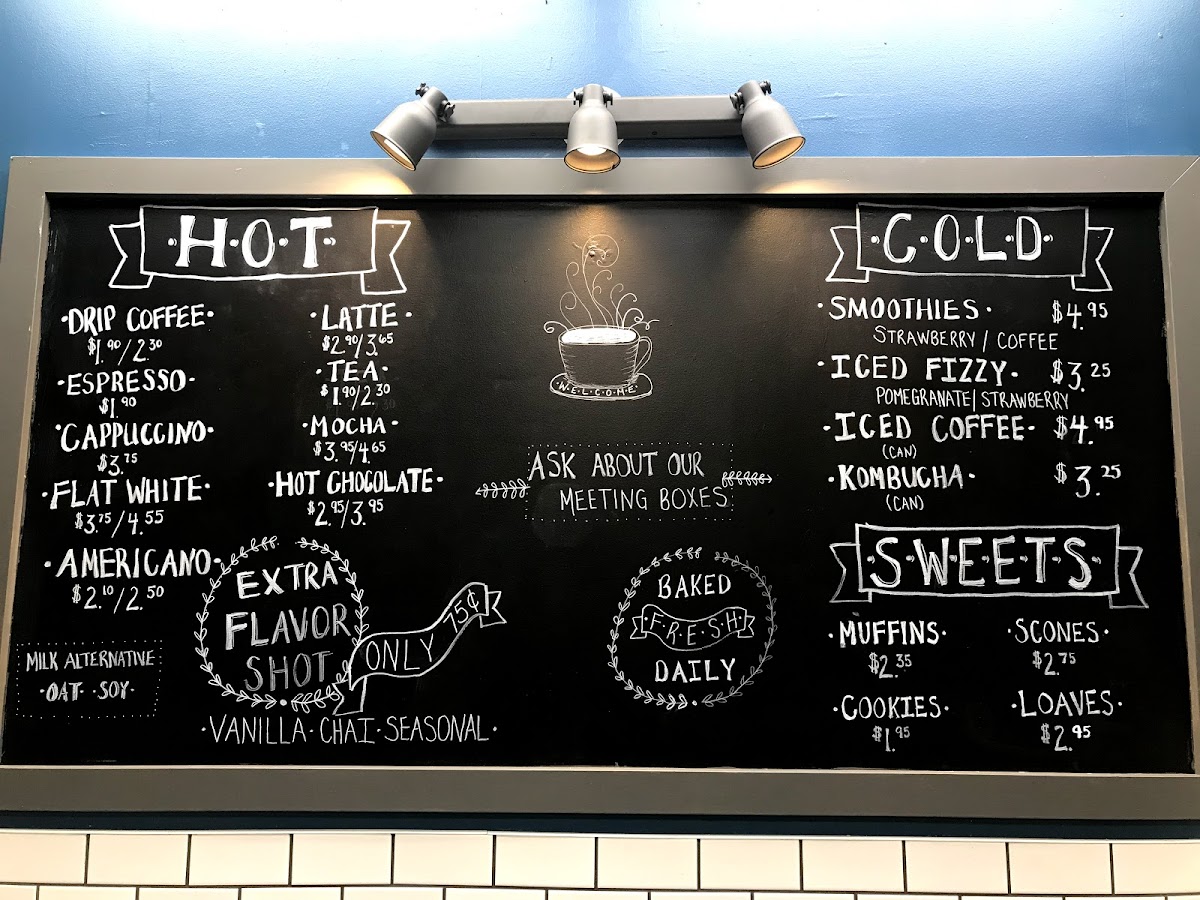 ·H·O·T·
·DRIP COFFEE·
$1.90/2.30
·ESPRESSO·
$1.90
·CAPPUCCINO·
$3.75
·FLAT WHITE·
$3.75/4.55
·AMERICANO·
$2.10/2.50
·LATTE·
$2.90/3.65
·TEA·
$1.90/2.30
·MOCHA·
$3.95/4.65
·HOT CHOCOLATE·
$2.95/3.95
MILK ALTERNATIVE
·OAT· ·SOY·
EXTRA
FLAVOR
SHOT
ONLY 75¢
·VANILLA·CHAI·SEASONAL·
·W·E·L·C·O·M·E·
ASK ABOUT OUR
MEETING BOXES
BAKED
·F·R·E·S·H·
DAILY
·C·O·L·D·
·SMOOTHIES· $4.95
STRAWBERRY / COFFEE
·ICED FIZZY· $3.25
POMEGRANATE / STRAWBERRY
·ICED COFFEE· $4.95
(CAN)
·KOMBUCHA· $3.25
(CAN)
·S·W·E·E·T·S·
·MUFFINS·
$2.35
·SCONES·
$2.75
·COOKIES·
$1.95
·LOAVES·
$2.95